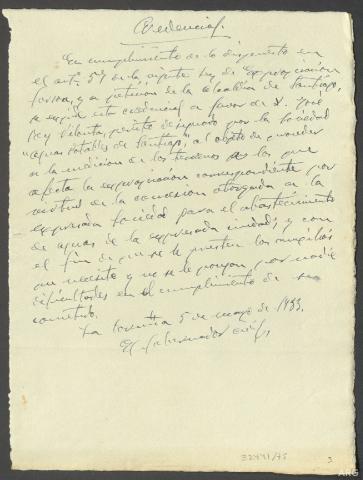 Credencial.
En cumplimiento de lo dispuesto en
el artº 5º de la vigente ley de expropiación
forzosa, y a petición de la alcaldía de Santiago,
se expide esta credencial a favor de D. José
Rey perito designado por la Sociedad
"Aguas potables de Santiago", al objeto de proceder
a la medición de los terrenos a los que
afecta la expropiación correspondiente por
virtud de la concesión otorgada a la
expresada Sociedad para el abastecimiento
de aguas de la expresada ciudad, y con
el fin de que se le presten los auxilios
que necesite y no se le pongan por nadie
dificultades en el cumplimiento de su
cometido.
La Coruña 5 de mayo de 1933.
El Gobernador civil,
32441/75
3
ARG